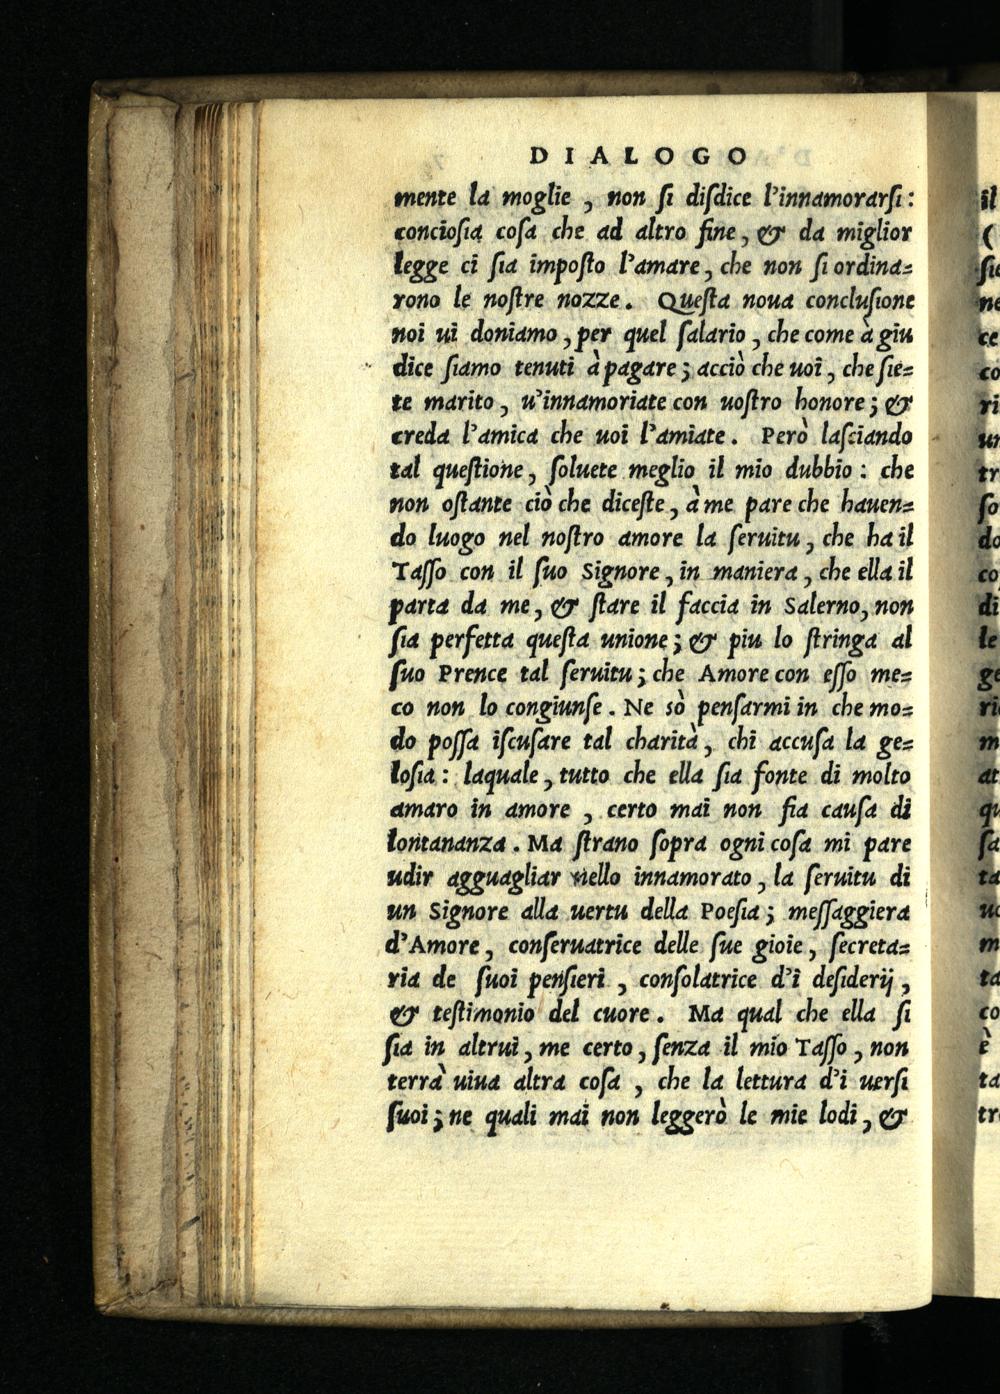 DIALOGO
mente la moglie , non ſi diſdice l'innamorarſi :
concioſia coſa che ad altro fine , & da miglior
legge ci ſia impoſto l'amare , che non ſi ordina=
rono le noſtre nozze . Queſta noua concluſione
noi ui doniamo , per quel ſalario , che come à giu
dice ſiamo tenuti à pagare ; acciò che uoi , che ſie=
te marito , u'innamoriate con uoſtro honore ; &
creda l'amica che uoi l'amiate . Però laſciando
tal queſtione , ſoluete meglio il mio dubbio : che
non oſtante ciò che diceſte , à me pare che hauen=
do luogo nel noſtro amore la ſeruitu , che ha il
Taſſo con il ſuo Signore , in maniera , che ella il
parta da me , & ſtare il faccia in Salerno , non
ſia perfetta queſta unione ; & piu lo ſtringa al
ſuo Prence tal ſeruitu ; che Amore con eſſo me=
co non lo congiunſe . Ne sò penſarmi in che mo=
do poſſa iſcuſare tal charità , chi accuſa la ge=
loſia : laquale , tutto che ella ſia fonte di molto
amaro in amore , certo mai non fia cauſa di
lontananza . Ma ſtrano ſopra ogni coſa mi pare
udir agguagliar nello innamorato , la ſeruitu di
un Signore alla uertu della Poeſia ; meſſaggiera
d'Amore , conſeruatrice delle ſue gioie , ſecreta=
ria de ſuoi penſieri , conſolatrice d'i deſiderij ,
& teſtimonio del cuore . Ma qual che ella ſi
ſia in altrui , me certo , ſenza il mio Taſſo , non
terrà uiua altra coſa , che la lettura d'i uerſi
ſuoi ; ne quali mai non leggerò le mie lodi , &